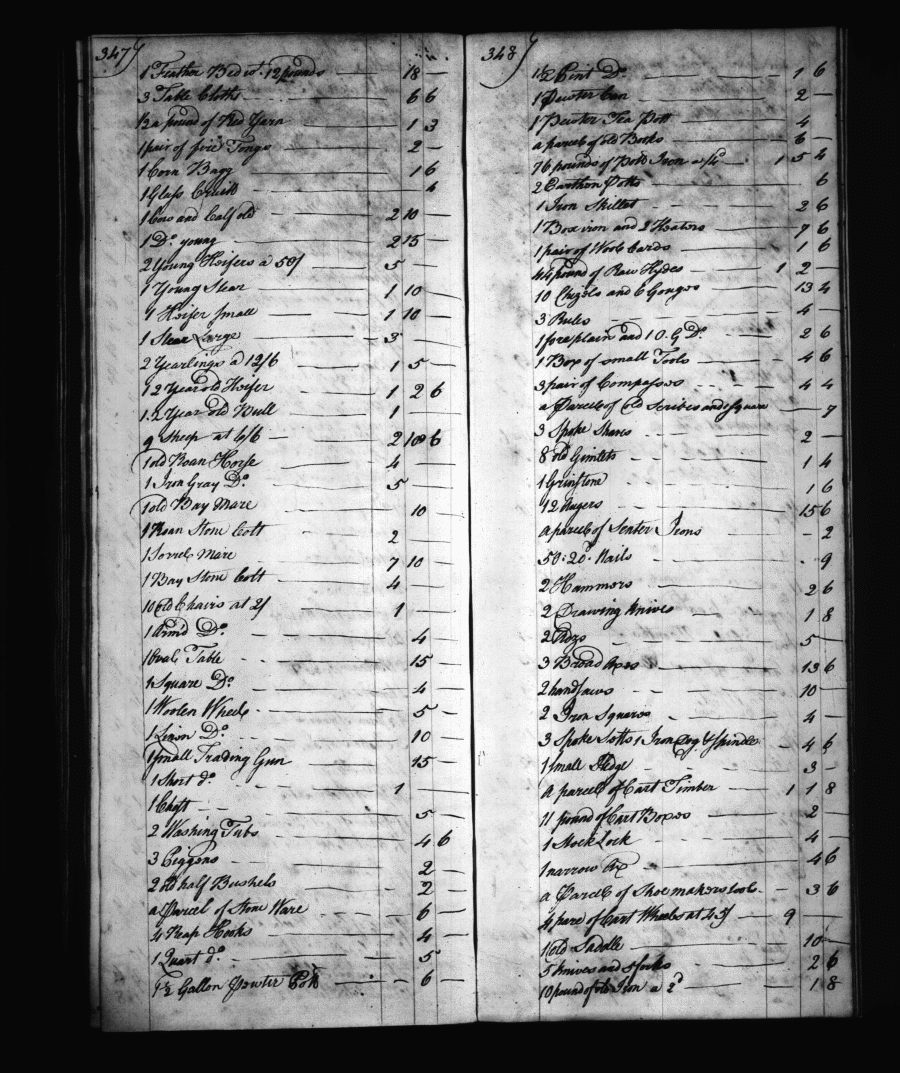 347
1 Feather Bed wt. 12 pounds — 18 —
3 Table Cloths — 6 6
1/2 a pound of Red Yarn — 1 3
1 pair of fire Tongs — 2 —
1 Corn Bagg — 1 6
1 Glass Cruitt — 4
1 Cow and Calf old — 2 10 —
1 Do. young — 2 15 —
2 Young Heifers a 50/ — 5 —
1 Young Stear — 1 10 —
1 Heifer small — 1 10 —
1 Stear Large — 3 —
2 Yearlings a 12/6 — 1 5 —
1 2 Year old Heifer — 1 2 6
1. 2 Year old Bull — 1 —
9 Sheep at 6/6 — 2 18 6
1 old Roan Horse — 4 —
1 Iron Gray Do. — 5 —
1 old Bay Mare 10 —
1 Roan Stone Colt — 2 —
1 Sorrel Mare 7 10 —
1 Bay Stone Colt — 4 —
10 Old Chairs at 2/ — 1 —
1 Arm'd Do. — 4 —
1 Oval Table — 15 —
1 Square Do. — 4 —
1 Woolen Wheel — 5 —
1 Linen Do. — 10 —
1 Small Trading Gun 15 —
1 Short do. — 1 —
1 Chest — 5 —
2 Washing Tubs — 4 6
3 Piggons — 2 —
2 Old half Bushels — 2 —
a Parcel of Stone Ware — 6 —
4 Reap Hooks — 4 —
1 Quart do. — 5
1 1/2 Gallon Pewter Pott — 6
348
1 1/2 Pint Do. — 1 6
1 Pewter Can — 2 —
1 Pewter Tea Pott — 4
a parcel of old Books — 6 —
76 pounds of Bold Iron a /4 — 1 5 4
2 Earthen Potts — 6
1 Iron Skillet — 2 6
1 Box iron and 2 Heaters — 7 6
1 pair of Wool Cards — 1 6
44 pound of Raw Hydes — 1 2 —
10 Chizels and 6 Gouges — 13 4
3 Rules — 4 —
1 fore plain and 1 O.G Do. — 2 6
1 Box of small Tools — 4 6
3 pair of Compasses — 4 4
a Parcel of Old Scribes and Square — 7
3 Spoke Shaves — 2 —
8 old Gimlets — 1 4
1 Grinstone — 1 6
12 Augers — 15 6
a parcel of Senter Irons — 2
50: 20d. Nails — 9
2 Hammers — 2 6
2 Drawing Knives — 1 8
2 Adzs — 5 —
3 Broad Axes — 13 6
2 handsaws — 10 —
2 Iron Squares — 4 —
3 Spoke Setts 1 Iron Dog & Spindle — 4 6
1 small Sledge — 3 —
a parcel of Cart Timber — 1 1 8
11 pound of Cart Boxes — 2 —
1 Stock Lock — 4 —
1 narrow Ax — 4 6
a Parcel of Shoemakers tools — 3 6
4 pare of Cart Wheels at 45/ — 9 —
1 Old Saddle — 10 —
5 Knives and 5 forks — 2 6
10 pound of old Iron a 2d — 1 8